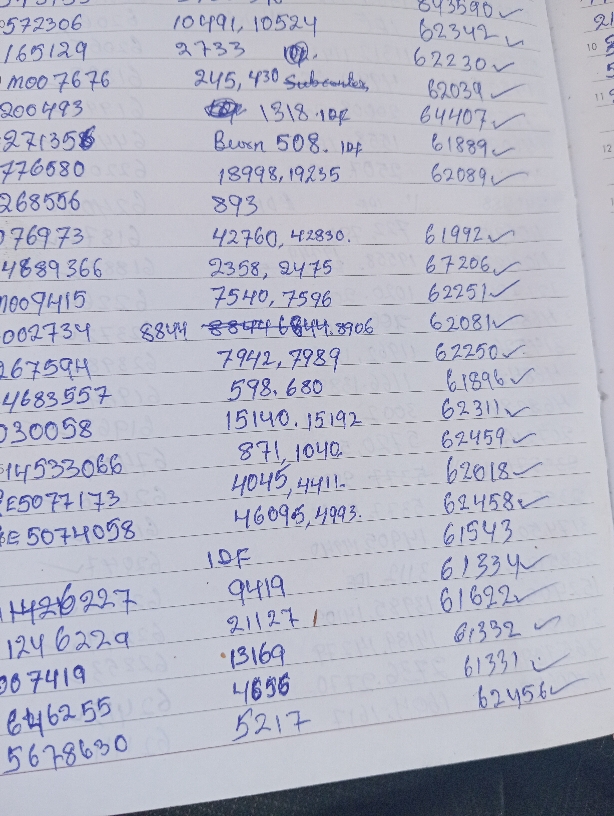 893590 ✓
572306 10491, 10524 62342 ✓
165129 2733 62230 ✓
M007676 245, 430 62039 ✓
200493 1318 IDF 64407 ✓
271356 Burn 508. IDF 61889 ✓
776580 18998, 19235 62089 ✓
268556 893
076973 42760, 42830. 61992 ✓
4889366 2358, 2475 67206 ✓
M009415 7540, 7596 62251 ✓
002734 8844 8906 62081 ✓
267594 7942, 7989 62250 ✓
4683557 598. 680 61896 ✓
030058 15140. 15192 62311 ✓
14533066 871, 1040. 62459 ✓
E5077173 4045, 4411. 62018 ✓
E5074058 46095, 4993. 62458 ✓
IDF 61543
11426227 9419 61334 ✓
1246229 21127 61622 ✓
007419 13169 61332 ✓
646255 4656 61331 ✓
5678630 5217 62456 ✓
10
11
12